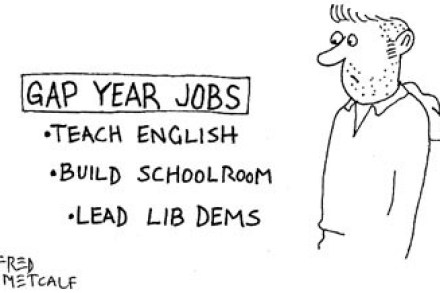 GAP YEAR JOBS
•TEACH ENGLISH
•BUILD SCHOOLROOM
•LEAD LIB DEMS
FRED
METCALF